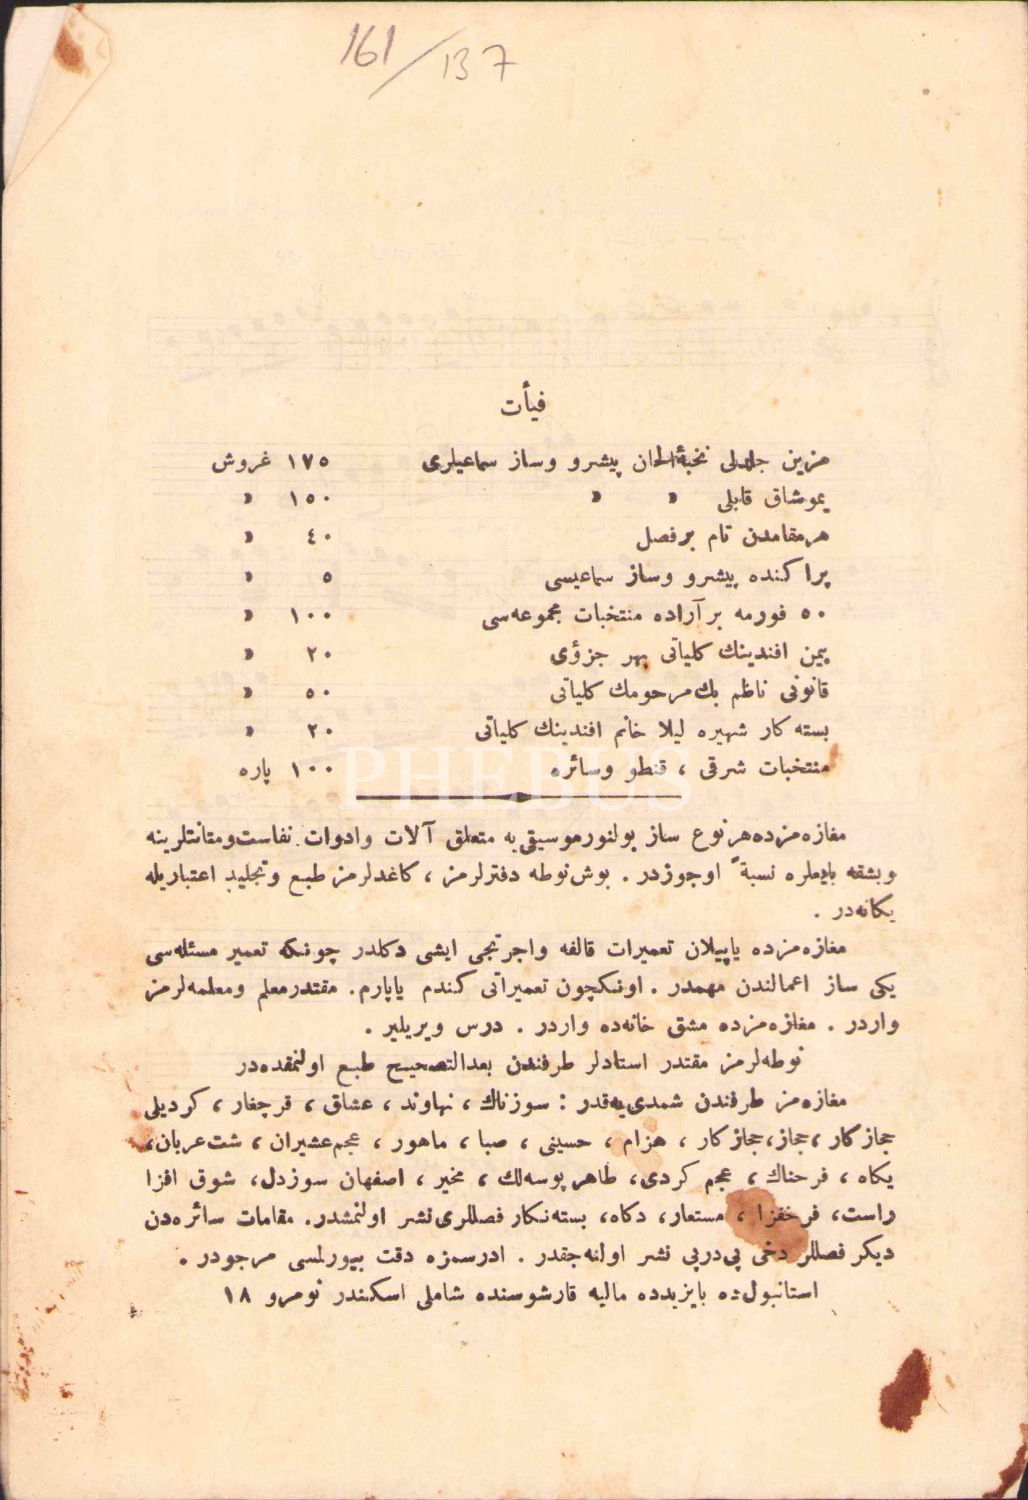 161/137
فیأت
مزین جلدلی نخبهٔ الحان پیشرو وساز سماعیلری ١٧٥ غروش
یموشاق قابلی » » ١٥٠ »
هرمقامدن تام برفصل ٤٠ »
پراکنده پیشرو وساز سماعیسی ٥ »
٥٠ فورمه برآراده منتخبات مجموعه‌سی ١٠٠ »
یمن افندینك کلیاتی بهر جزؤی ٢٠ »
قانونی ناظم بك مرحومك کلیاتی ٥٠ »
بسته کار شهیره لیلا خانم افندینك کلیاتی ٢٠ »
منتخبات شرقی ، قنطو وسائره ١٠٠ پاره
PHEBUS
مغازه‌مزده هرنوع ساز بولنور موسیقی‌یه متعلق آلات وادوات نفاست ومتانتلرینه
وبشقه یایعلره نسبةً اوجوزدر . بوش نوطه دفترلرمز ، کاغدلرمز طبع وتجلید اعتباریله
یکانه‌در .
مغازه‌مزده یاپیلان تعمیرات قالفه واجرتجی ایشی دکلدر چونکه تعمیر مسئله‌سی
یکی ساز اعمالندن مهمدر . اونکچون تعمیراتی کندم یاپارم. مقتدر معلم ومعلمه‌لرمز
واردر . مغازه‌مزده مشق خانه‌ده واردر . درس ویریلیر .
نوطه‌لرمز مقتدر استادلر طرفندن بعدالتصحیح طبع اولنمقده‌در
مغازه‌مز طرفندن شمدی‌یه‌قدر : سوزناك ، نهاوند ، عشاق ، قرجغار ، کردیلی
حجازکار ، حجاز، حجازکار ، هزام ، حسینی ، صبا ، ماهور ، عجم‌عشیران ، شت عربان،
یکاه ، فرحناك ، عجم کردی، طاهر پوسه‌لك ، مخیر ، اصفهان سوزدل، شوق افزا
راست، فرحفزا ، مستعار، دکاه، بسته‌نکار فصللری نشر اولنمشدر. مقامات سائره‌دن
دیکر فصللر دخی پی‌درپی نشر اولنه‌جقدر . ادرسمزه دقت بیورلمسی مرجودر .
استانبول‌ده بایزیدده مالیه قارشوسنده شاملی اسکندر نومرو ١٨